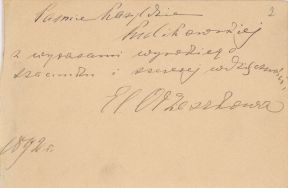 2
Pannie Kazyldzie
Kulikowskiej
z wyrazami wysokiego
szacunku i szczerej wdzięczności,
El. Orzeszkowa
1892 r.